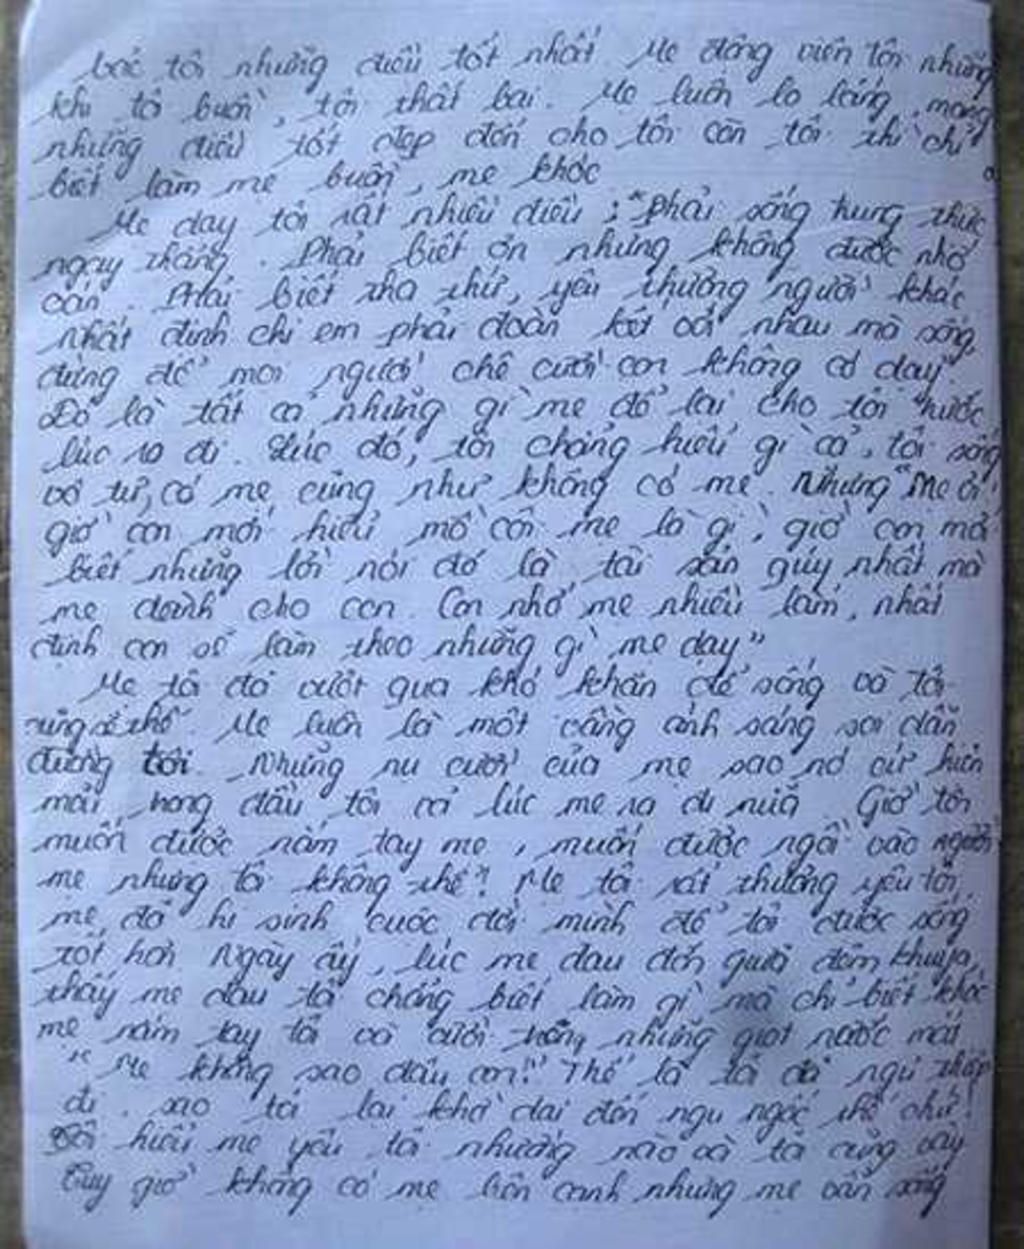 tôi những điều tốt nhất. Mẹ động viên tôi những
khi tôi buồn, tôi thất bại. Mẹ luôn lo lắng, mong
những điều tốt đẹp đến cho tôi còn tôi thì chỉ
biết làm mẹ buồn, mẹ khóc
Mẹ dạy tôi rất nhiều điều : "Phải sống trung thực
ngay thẳng. Phải biết ơn nhưng không được nhớ
oán. Phải biết tha thứ, yêu thương người khác
nhất định chị em phải đoàn kết với nhau mà sống,
đừng để mọi người chê cười con không có dạy".
Đó là tất cả những gì mẹ để lại cho tôi trước
lúc ra đi. Lúc đó, tôi chẳng hiểu gì cả, tôi sống
vô tư, có mẹ cũng như không có mẹ. Nhưng "Mẹ ơi!
giờ con mới hiểu mồ côi mẹ là gì, giờ con mới
biết những lời nói đó là tài sản quý nhất mà
mẹ dành cho con. Con nhớ mẹ nhiều lắm, nhất
định con sẽ làm theo những gì mẹ dạy"
Mẹ tôi đã vượt qua khó khăn để sống và tôi
cũng sẽ thế. Mẹ luôn là một vầng ánh sáng soi dẫn
đường tôi. Những nụ cười của mẹ sao nó cứ hiện
mãi trong đầu tôi cả lúc mẹ ra đi nữa. Giờ tôi
muốn được nắm tay mẹ, muốn được ngồi vào người
mẹ nhưng tôi không thể! Mẹ tôi rất thương yêu tôi,
mẹ đã hi sinh cuộc đời mình để tôi được sống
tốt hơn. Ngày ấy, lúc mẹ đau đớn giữa đêm khuya,
thấy mẹ đau tôi chẳng biết làm gì mà chỉ biết khóc
mẹ nắm tay tôi và cười trong những giọt nước mắt
"Mẹ không sao đâu con!" Thế là tôi đã ngủ thiếp
đi. sao tôi lại khờ dại đến ngu ngốc thế chứ!
Tôi hiểu mẹ yêu tôi nhường nào và tôi cũng vậy
Tuy giờ không có mẹ bên cạnh nhưng mẹ vẫn sống